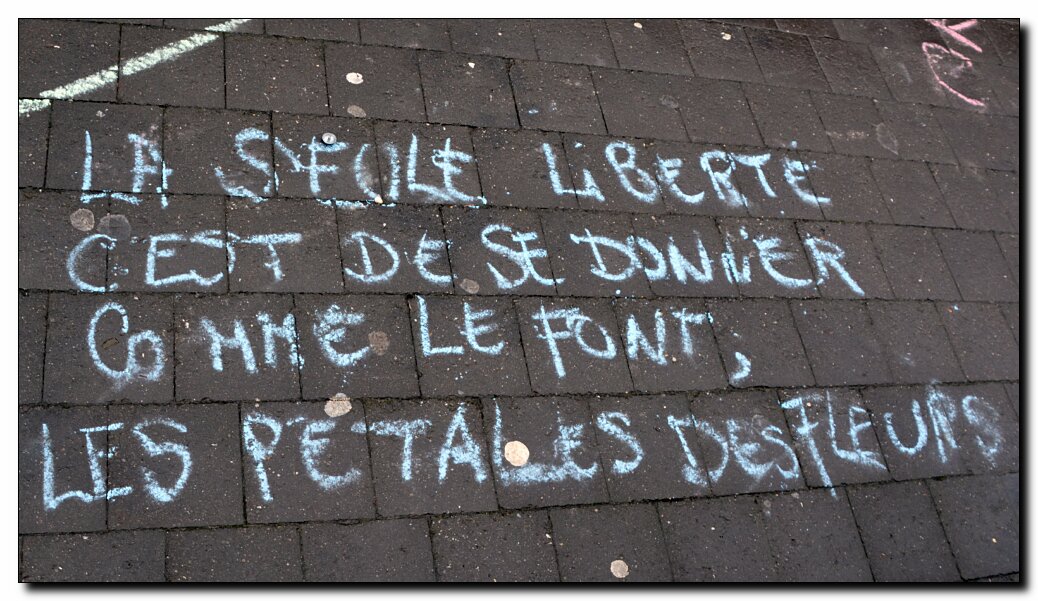 LA SEULE LiBERTÉ
C'EST DE SE DONNER
COMME LE FONT,
LES PETALES DES FLEURS